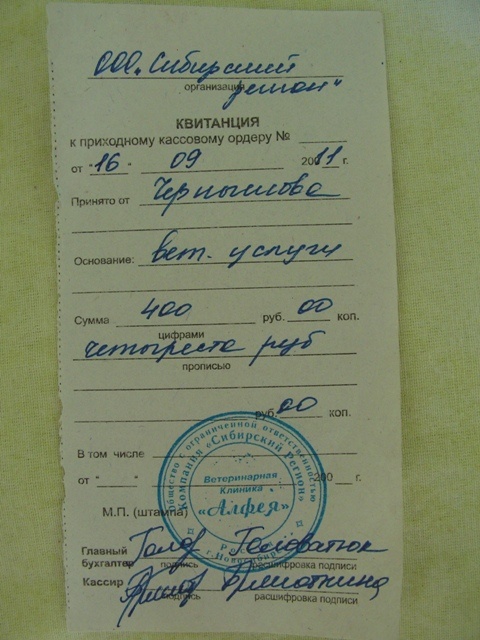 ООО „Сибирский
организация
регион"
КВИТАНЦИЯ
к приходному кассовому ордеру №
от "16" 09 20011 г.
Принято от
Основание: вет. услуги
Сумма 400 руб. 00 коп.
цифрами
четыреста руб
прописью
руб. 00 коп.
В том числе
от " " 200 г.
М.П. (штампа)
Общество с ограниченной ответственностью
Компания «Сибирский Регион»
Ветеринарная
Клиника
«Алфея»
г. Новосибирск
Главный Головатюк
бухгалтер подпись расшифровка подписи
Кассир
подпись расшифровка подписи